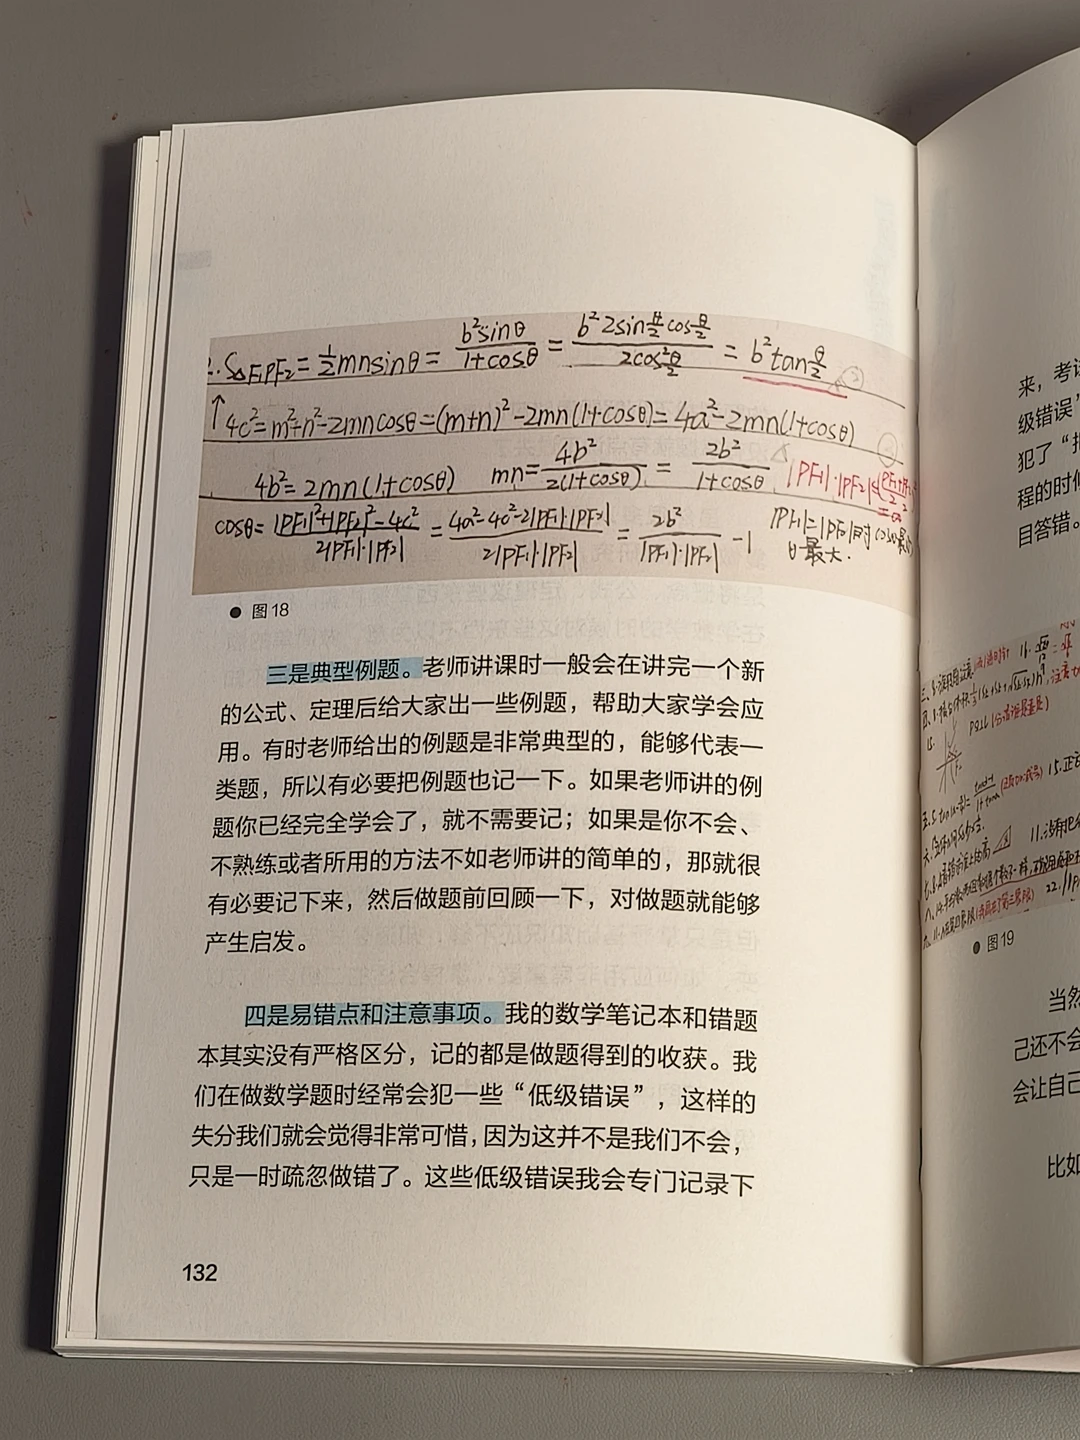 2. S△F₁PF₂ = ½mnsinθ = b²sinθ/(1+cosθ) = b²2sin(θ/2)cos(θ/2)/(2cos²(θ/2)) = b²tan(θ/2)
↑4c²=m²+n²-2mncosθ=(m+n)²-2mn(1+cosθ)=4a²-2mn(1+cosθ)
4b²=2mn(1+cosθ) mn=4b²/(2(1+cosθ)) = 2b²/(1+cosθ) |PF₁|·|PF₂|≤
cosθ=(|PF₁|²+|PF₂|²-4c²)/(2|PF₁|·|PF₂|) = (4a²-4c²-2|PF₁|·|PF₂|)/(2|PF₁|·|PF₂|) = 2b²/(|PF₁|·|PF₂|) -1 |PF₁|=|PF₂|时cosθ最
θ最大.
● 图18
三是典型例题。老师讲课时一般会在讲完一个新
的公式、定理后给大家出一些例题，帮助大家学会应
用。有时老师给出的例题是非常典型的，能够代表一
类题，所以有必要把例题也记一下。如果老师讲的例
题你已经完全学会了，就不需要记；如果是你不会、
不熟练或者所用的方法不如老师讲的简单的，那就很
有必要记下来，然后做题前回顾一下，对做题就能够
产生启发。
四是易错点和注意事项。我的数学笔记本和错题
本其实没有严格区分，记的都是做题得到的收获。我
们在做数学题时经常会犯一些“低级错误”，这样的
失分我们就会觉得非常可惜，因为这并不是我们不会，
只是一时疏忽做错了。这些低级错误我会专门记录下
132
来，考
级错误”
犯了“
程的时
目答错。
● 图19
当然
己还不会
会让自己
比如